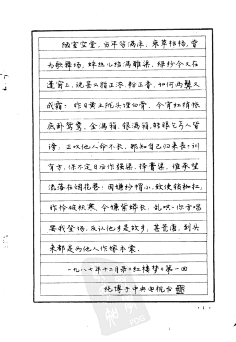 陋室空堂，当年笏满床，衰草枯杨，曾
为歌舞场。蛛丝儿结满雕梁，绿纱今又在
蓬窗上。说甚么脂正浓、粉正香，如何两鬓又
成霜？昨日黄土陇头埋白骨，今宵红绡帐
底卧鸳鸯。金满箱，银满箱，转眼乞丐人皆
谤；正叹他人命不长，那知自己归来丧！训
有方，保不定日后作强梁。择膏粱，谁承望
流落在烟花巷！因嫌纱帽小，致使锁枷扛，
昨怜破袄寒，今嫌紫蟒长：乱哄哄你方唱
罢我登场，反认他乡是故乡，甚荒唐，到头
来都是为他人作嫁衣裳。
一九八七年十二月录《红楼梦》第一回
于中央电视台